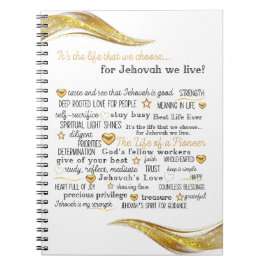 It's the life that we choose...
for Jehovah we live!
taste and see that Jehovah is good STRENGTH
DEEP ROOTED LOVE FOR PEOPLE MEANING IN LIFE
self-sacrifice stay busy Best Life Ever
SPIRITUAL LIGHT SHINES It's the life that we choose...
DILIGENT for Jehovah we live!
PRIORITIES The Life of a Pioneer
DETERMINATION God's Fellow workers
give of your best faith WHOLEHEARTED
ready, reflect, meditate TRUST keep it simple
Jehovah's Love HAPPY
HEART FULL OF JOY showing love COUNTLESS BLESSINGS
precious privilege treasure grateful
Jehovah is my strength JEHOVAH'S SPIRIT FOR GUIDANCE